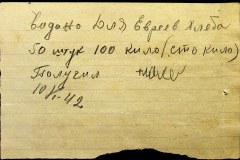 Выдано Для Евреев Хлеба
50 штук 100 кило (сто кило)
Получил
10/VI-42